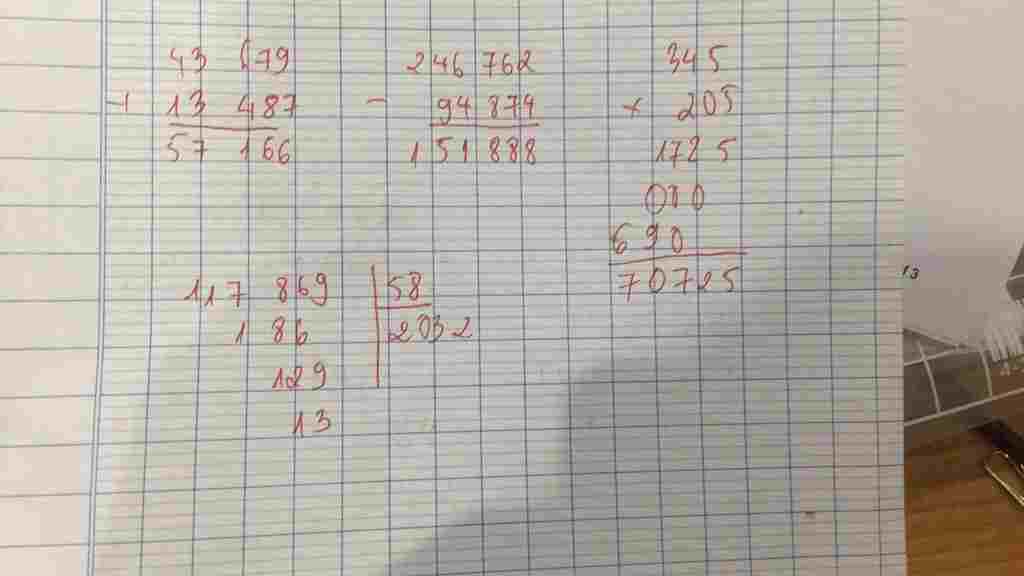 43 679
+ 13 487
57 166
246 762
- 94 874
151 888
345
x 205
1725
000
690
70725
117 869 58
1 86 2032
129
13